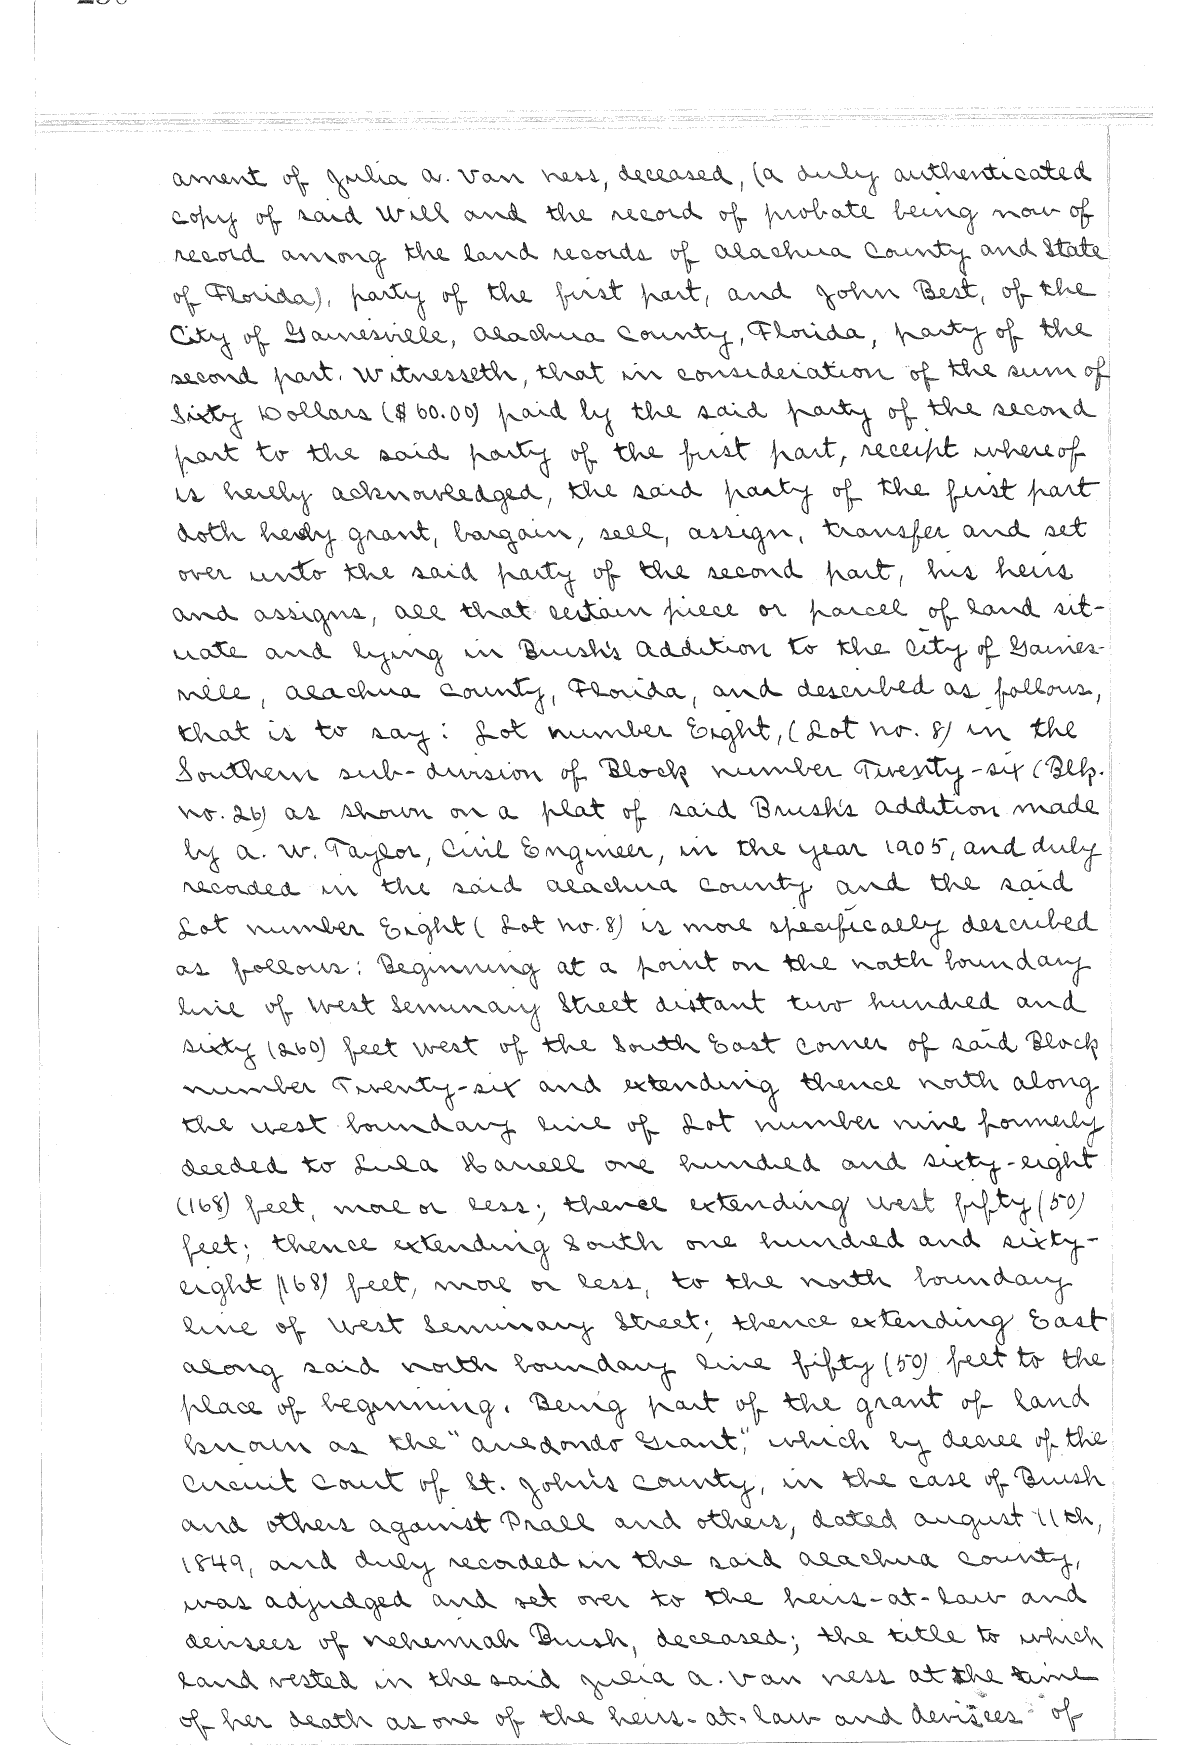 ament of Julia A. Van Ness, deceased, (a duly authenticated
copy of said Will and the record of probate being now of
record among the land records of Alachua County and State
of Florida), party of the first part, and John Best, of the
City of Gainesville, Alachua County, Florida, party of the
second part. Witnesseth, that in consideration of the sum of
Sixty Dollars ($60.00) paid by the said party of the second
part to the said party of the first part, receipt whereof
is hereby acknowledged, the said party of the first part
doth hereby grant, bargain, sell, assign, transfer and set
over unto the said party of the second part, his heirs
and assigns, all that certain piece or parcel of land sit-
uate and lying in Brush's Addition to the City of Gaines-
ville, Alachua County, Florida, and described as follows,
that is to say: Lot number Eight, (Lot no. 8) in the
Southern sub-division of Block number Twenty-six (Blk.
no. 26) as shown on a plat of said Brush's addition made
by A. W. Taylor, Civil Engineer, in the year 1905, and duly
recorded in the said Alachua County and the said
Lot number Eight (Lot no. 8) is more specifically described
as follows: Beginning at a point on the north boundary
line of West Seminary Street distant two hundred and
sixty (260) feet west of the South East corner of said Block
number Twenty-six and extending thence north along
the west boundary line of Lot number nine formerly
deeded to Lula Harrell one hundred and sixty-eight
(168) feet, more or less; thence extending west fifty (50)
feet; thence extending South one hundred and sixty-
eight (168) feet, more or less, to the north boundary
line of West Seminary Street; thence extending East
along said north boundary line fifty (50) feet to the
place of beginning. Being part of the grant of land
known as the "Arredondo Grant," which by decree of the
Circuit Court of St. John's County, in the case of Brush
and others against Prall and others, dated August 11th,
1849, and duly recorded in the said Alachua County,
was adjudged and set over to the heirs-at-law and
devisees of Nehemiah Brush, deceased; the title to which
land vested in the said Julia A. Van Ness at the time
of her death as one of the heirs-at-law and devisees of